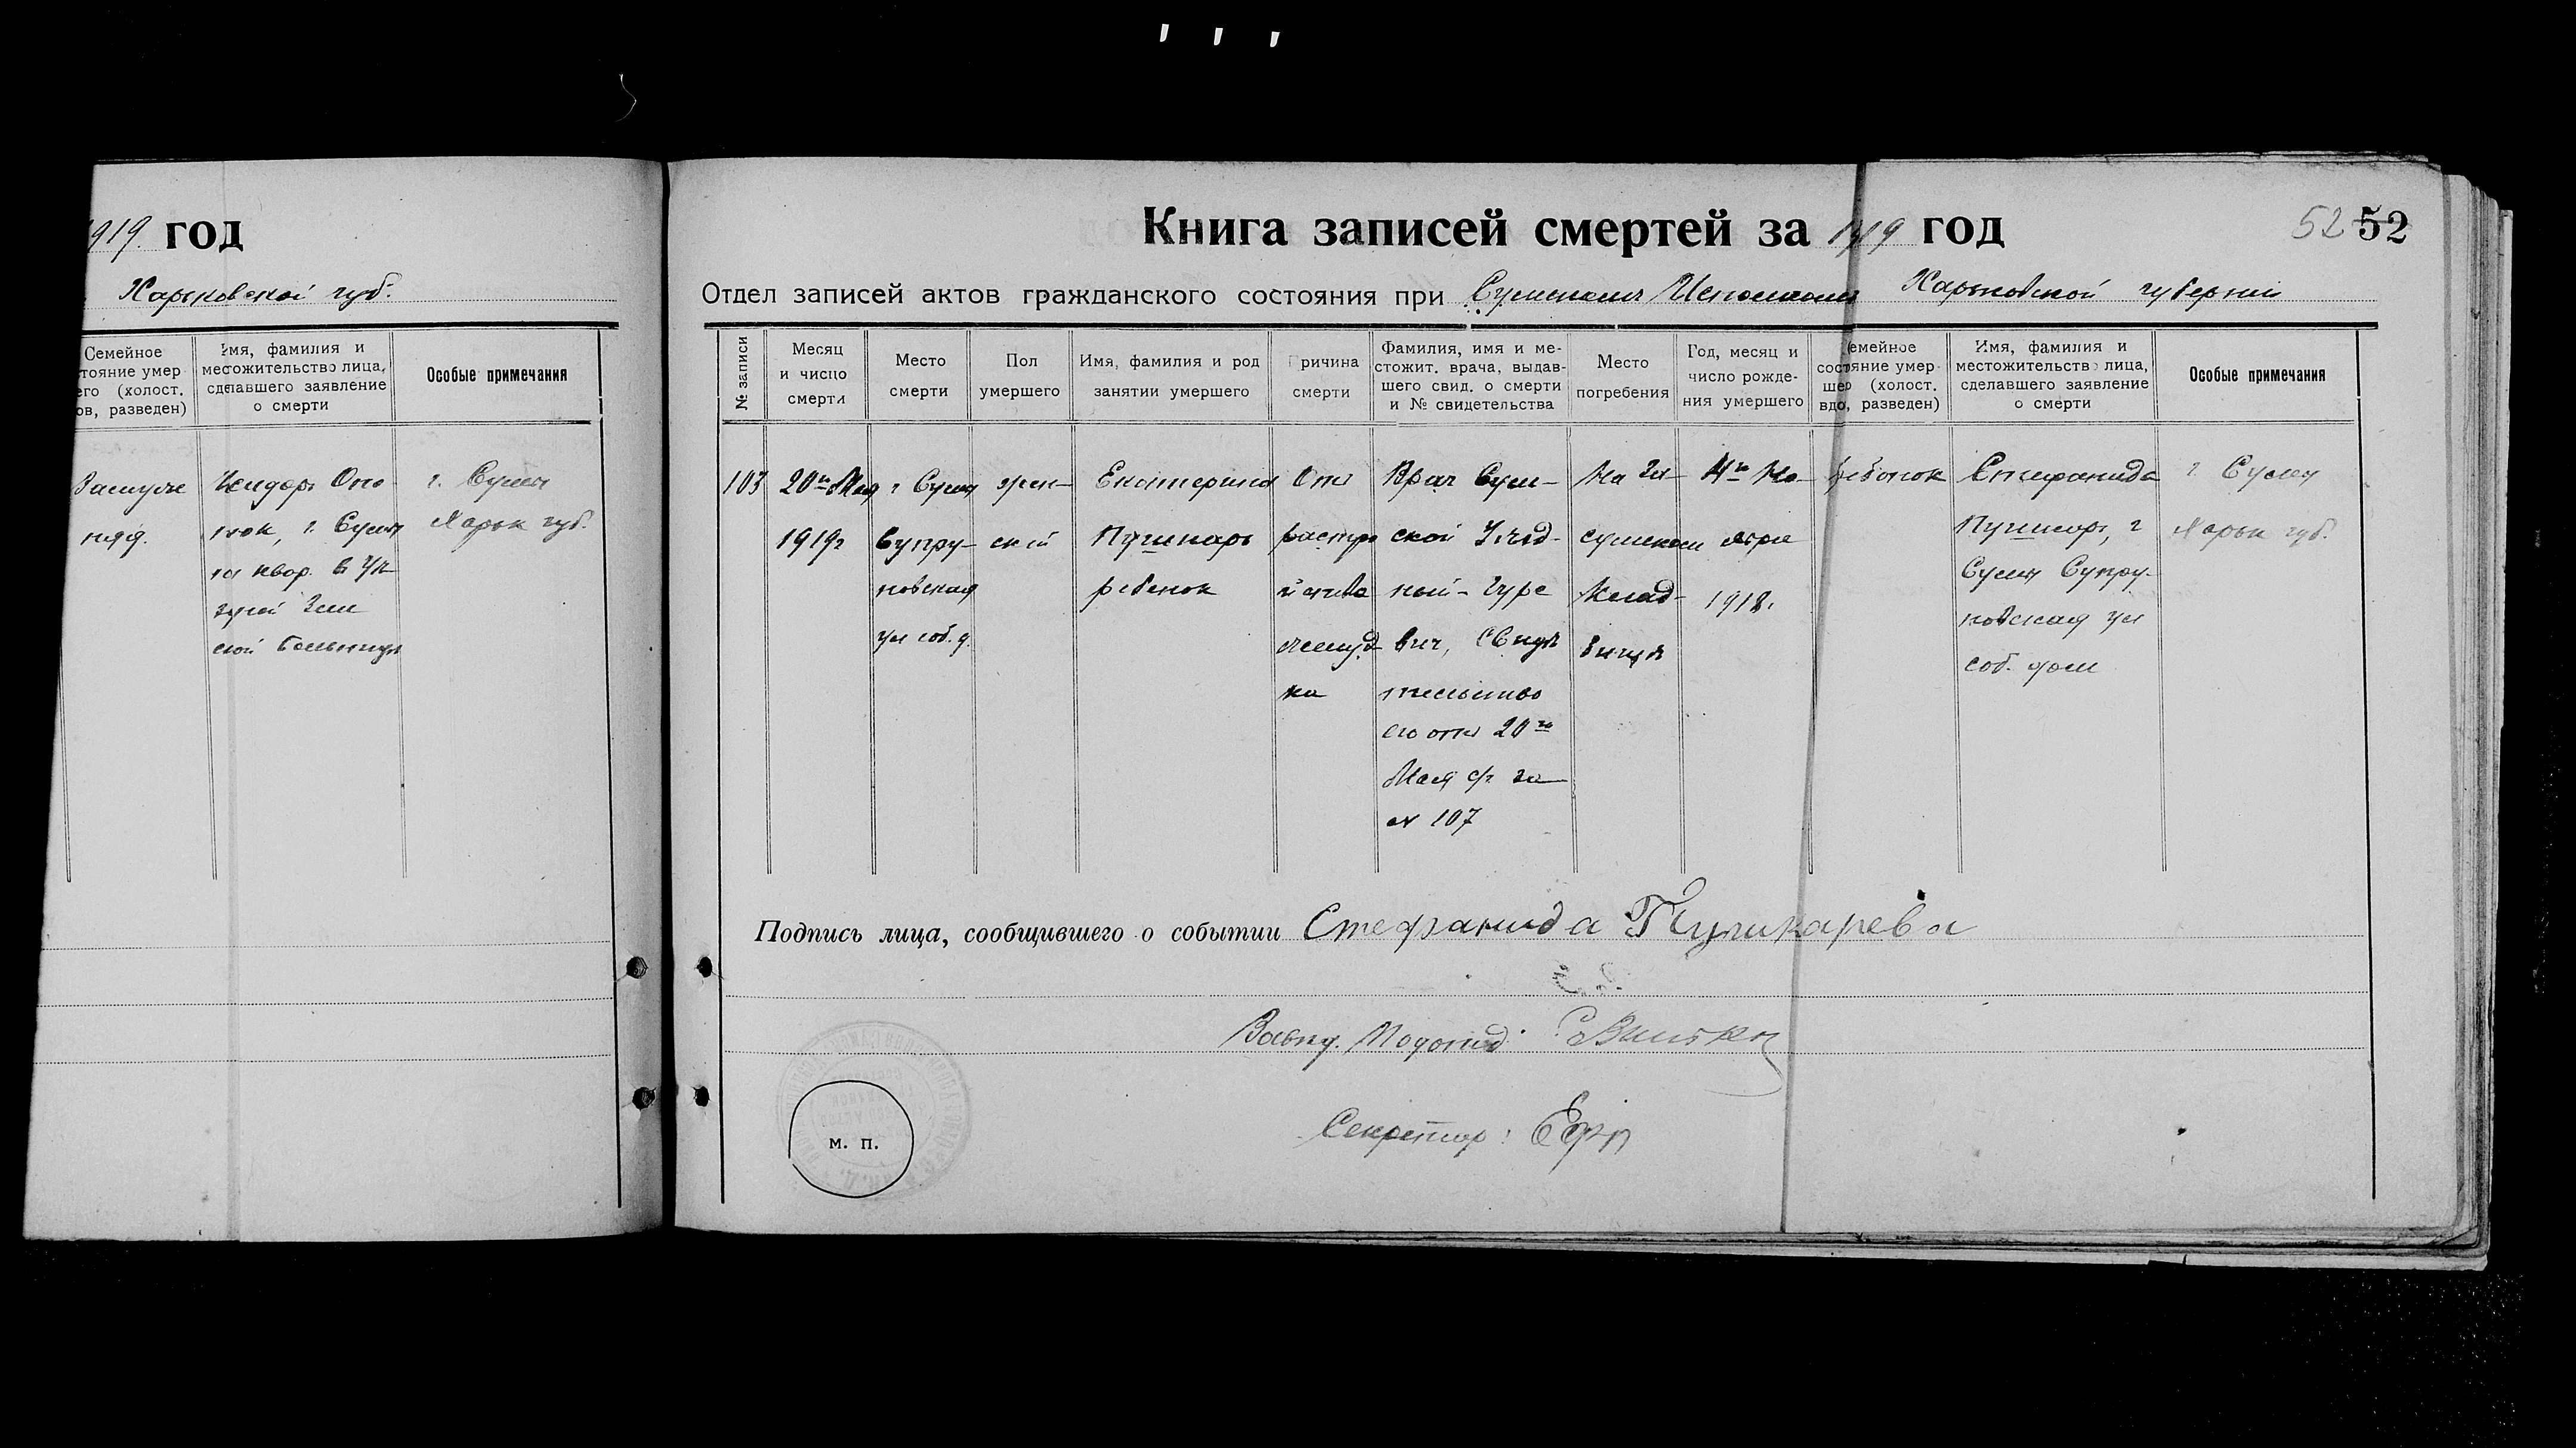 1919 год
Харьковской губ.
Семейное
стояние умер
его (холост.
ов, разведен)
Имя, фамилия и
местожительство лица,
сделавшего заявление
о смерти
Особые примечания
Замуж
няя.
г. Сумы
ток, г. Сумы
Харьк губ.
на квар. в
ской больницы
Книга записей смертей за 1919 год
52 52
Отдел записей актов гражданского состояния при Сумском Исполкоме Харьковской губернии
№ записи
Месяц
и число
смерти
Место
смерти
Пол
умершего
Имя, фамилия и род
занятии умершего
Причина
смерти
Фамилия, имя и ме-
стожит. врача, выдав-
шего свид. о смерти
и № свидетельства
Место
погребения
Год, месяц и
число рожде-
ния умершего
Семейное
состояние умер-
шего (холост.
вдо, разведен)
Имя, фамилия и
местожительство лица,
сделавшего заявление
о смерти
Особые примечания
103
20го Мая
1919г
г Сумы
Супру-
новская
ул соб. д.
жен-
ский
Екатерина
Пушкарь
ребенок
От
растро
йства
желуд
ка
Врач Сум-
ской Уезд-
ный - Гуре
вич, Свиде
тельство
его от 20го
Мая с/г за
№ 107
На
Сумском
Клад-
бище
4го Но-
ября
1918.
ребенок
Стефанида
Пушкарь, г
Сумы Супру-
новская ул
соб. дом
г Сумы
Харьк губ.
Подпись лица, сообщившего о событии Стефанида Пушкарева
Завед. Подотд.
Секретарь:
м. п.